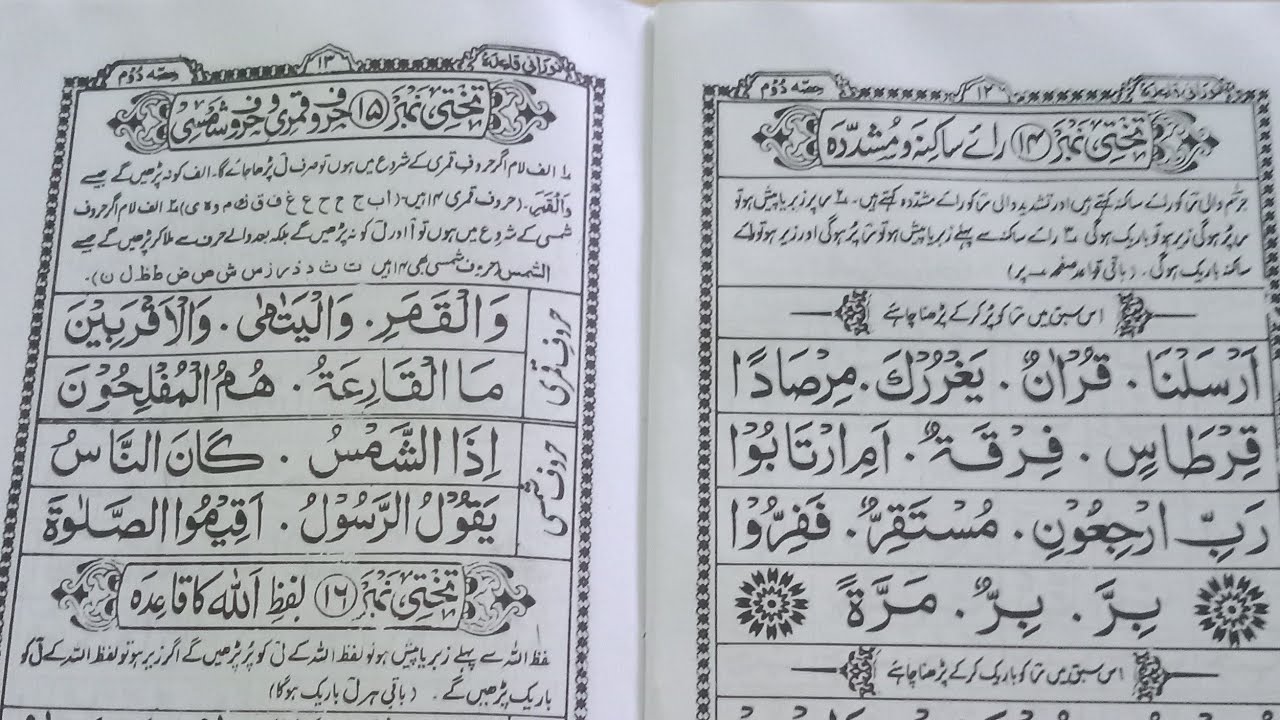 حصه دُوُم ۱۲ نورانی قاعدہ
تختی نمبر ۱۴ رائے ساکنہ و مُشدّدہ
جزم والی ر کو رائے ساکنہ کہتے ہیں اور تشدید والی ر کو رائے مشددہ کہتے ہیں۔ ۱ ر پر زبر یا پیش ہو تو
ر پُر ہوگی زیر ہو تو باریک ہوگی ۲ رائے ساکنہ سے پہلے زبر یا پیش ہو تو ر پُر ہوگی اور زیر ہو تو رائے
ساکنہ باریک ہوگی۔ (باقی قواعد صفحہ پر)
اس سبق میں ر کو پُر کر کے پڑھنا چاہئے
اَرْسَلْنَا۔ قُرْاٰنٌ۔ يَغْرُرْكَ۔ مِرْصَادًا
قِرْطَاسٍ۔ فِرْقَةٌ۔ اَمِ ارْتَابُوْا
رَبِّ ارْجِعُوْنِ۔ مُسْتَقِرٌّ۔ فَفِرُّوْا
بِرَّ۔ بِرٌّ۔ مَرَّةً
اس سبق میں ر کو باریک کر کے پڑھنا چاہئے
حصه دُوُم ۱۳ نورانی قاعدہ
تختی نمبر ۱۵ حروف قمری و حروف شمسی
۱ الف لام اگر حروف قمری کے شروع میں ہوں تو صرف لؔ پڑھا جائے گا۔ الف کو نہ پڑھیں گے جیسے
وَالْقَمَرِ۔ (حروف قمری ۱۴ ہیں۔ (أ ب ج ح خ ع غ ف ق ك م و ه ى) ۲ الف لام اگر حروف
شمسی کے شروع میں ہوں تو اؔ اور لؔ کو نہ پڑھیں گے بلکہ بعد والے حرف سے ملا کر پڑھیں گے جیسے
الشمس (حروف شمسی بھی ۱۴ ہیں ت ث د ذ ر ز س ش ص ض ط ظ ل ن)۔
حروف قمری
وَالْقَمَرِ۔ وَالْيَتٰمٰى۔ وَالْاَقْرَبِيْنَ
مَا الْقَارِعَةُ۔ هُمُ الْمُفْلِحُوْنَ
حروف شمسی
اِذَا الشَّمْسُ۔ كَانَ النَّاسُ
يَقُوْلُ الرَّسُوْلُ۔ اَقِيْمُوا الصَّلٰوةَ
تختی نمبر ۱۶ لفظِ اَللّٰه کا قاعدہ
لفظ اللہ سے پہلے زبر یا پیش ہو تو لفظ اللہ کے لؔ کو پُر پڑھیں گے اگر زیر ہو تو لفظ اللہ کے لؔ کو
باریک پڑھیں گے۔ (باقی ہر لؔ باریک ہوگا)